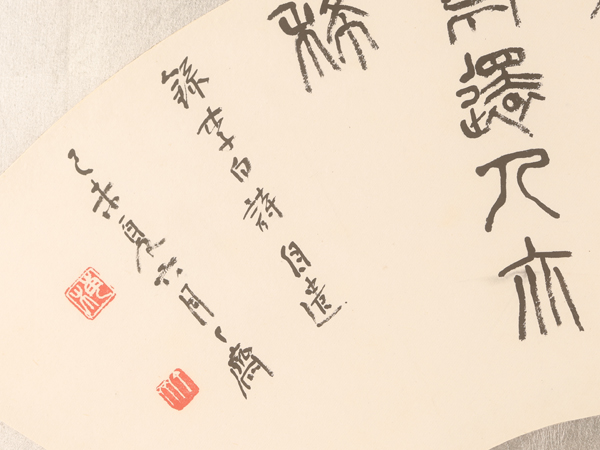 還人亦
稀
錄李白詩自遣
乙未夏六月